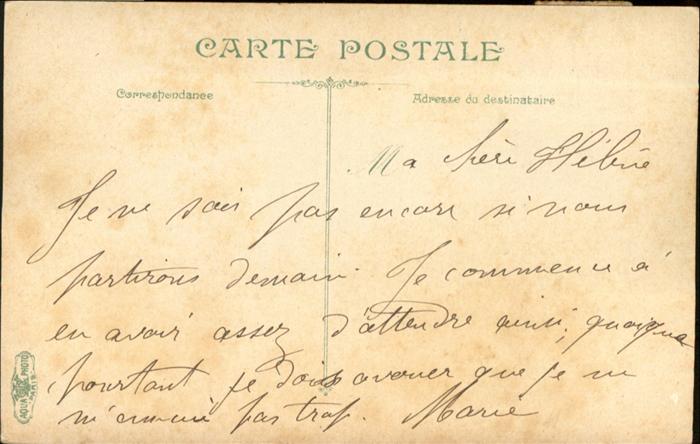 CARTE POSTALE
Correspondance
Adresse du destinataire
Ma chère Hélène
Je ne sais pas encore si nous
partirons demain. Je commence à
en avoir assez d'attendre ainsi, quoique
pourtant je dois avouer que je ne
m'ennuie pas trop. Marie
AQUA PHOTO
PARIS